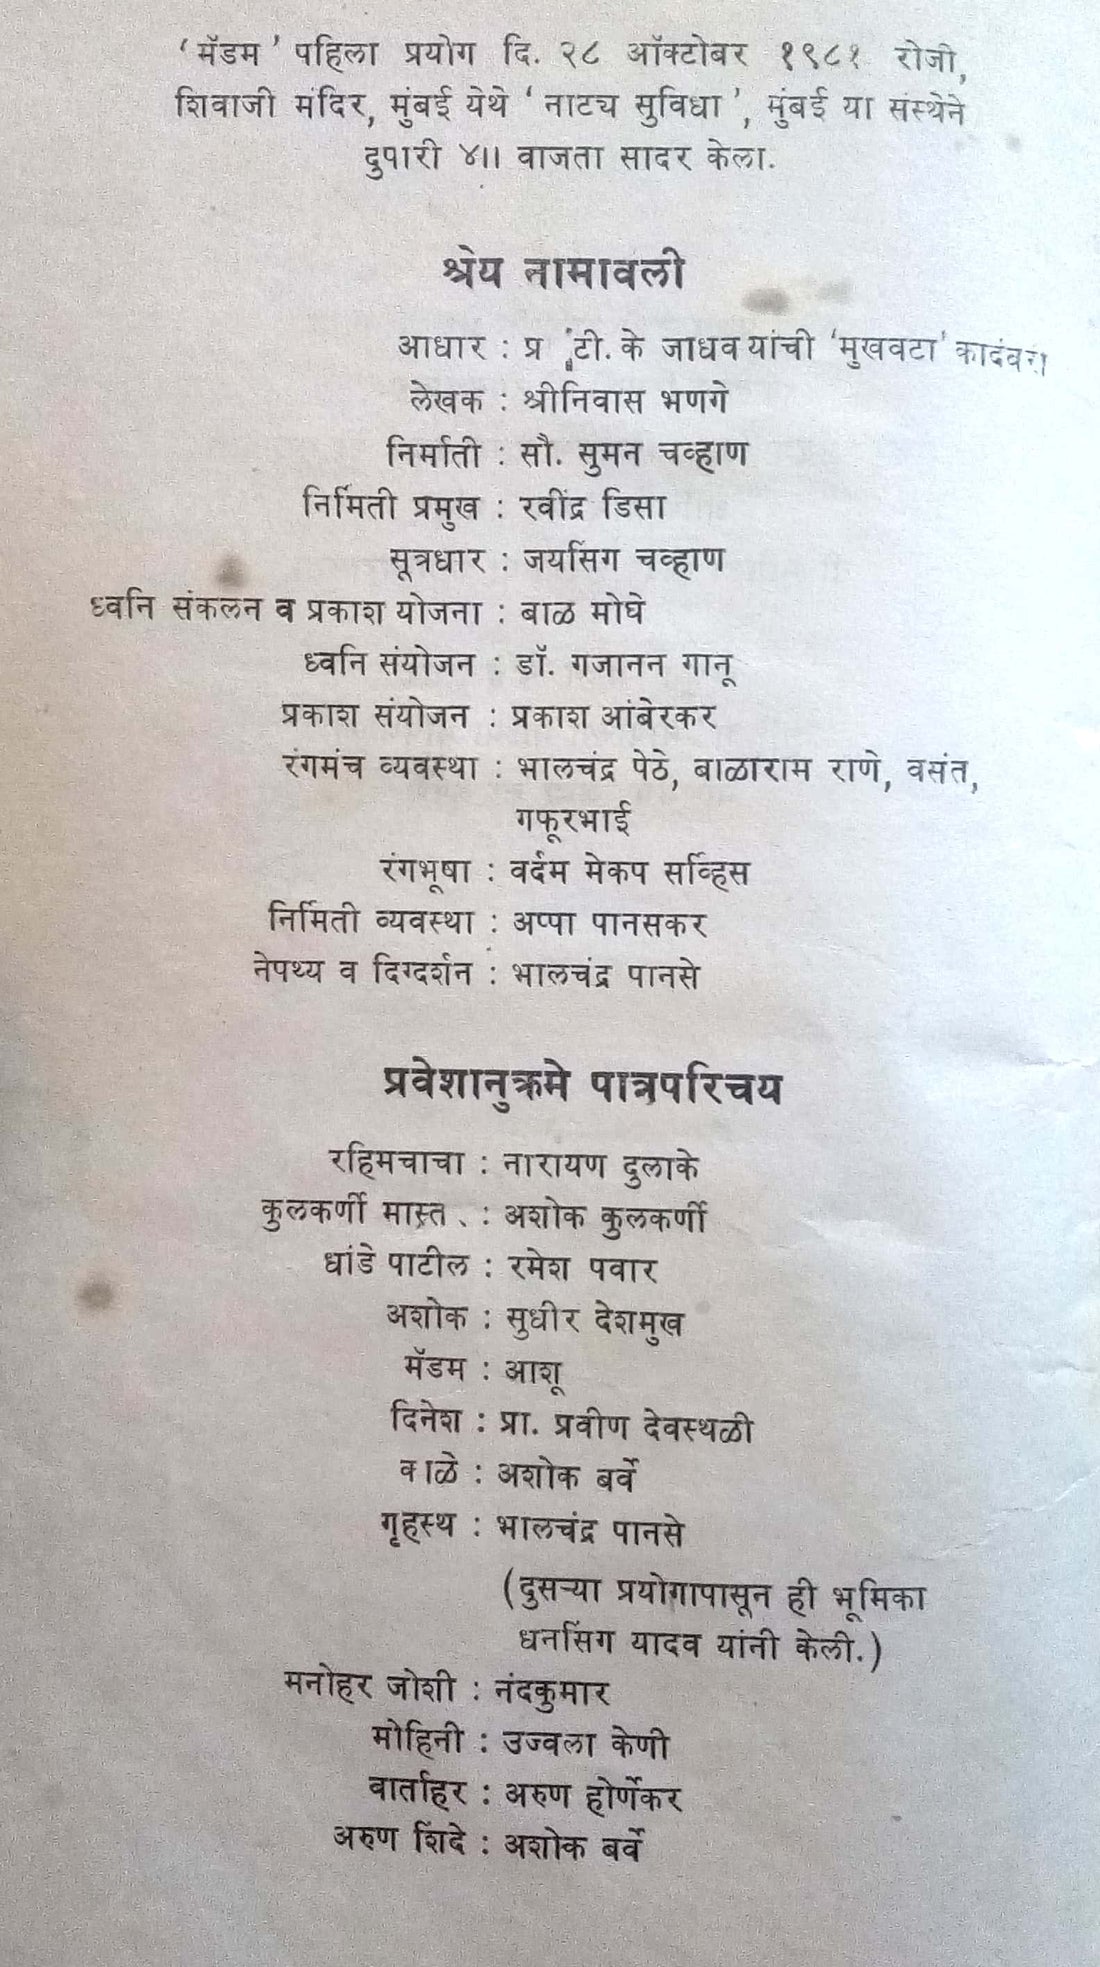 ‘ मॅडम ’ पहिला प्रयोग दि. २८ ऑक्टोबर १९८१ रोजी,
शिवाजी मंदिर, मुंबई येथे ‘ नाट्य सुविधा ’, मुंबई या संस्थेने
दुपारी ४।। वाजता सादर केला.
श्रेय नामावली
आधार : प्र टी. के जाधव यांची ‘मुखवटा’ कादंबरी
लेखक : श्रीनिवास भणगे
निर्माती : सौ. सुमन चव्हाण
निर्मिती प्रमुख : रवींद्र डिसा
सूत्रधार : जयसिंग चव्हाण
ध्वनि संकलन व प्रकाश योजना : बाळ मोघे
ध्वनि संयोजन : डॉ. गजानन गानू
प्रकाश संयोजन : प्रकाश आंबेरकर
रंगमंच व्यवस्था : भालचंद्र पेठे, बाळाराम राणे, वसंत,
गफूरभाई
रंगभूषा : वर्दम मेकप सर्व्हिस
निर्मिती व्यवस्था : अप्पा पानसकर
नेपथ्य व दिग्दर्शन : भालचंद्र पानसे
प्रवेशानुक्रमे पात्रपरिचय
रहिमचाचा : नारायण दुलाके
कुलकर्णी मास्त : अशोक कुलकर्णी
धांडे पाटील : रमेश पवार
अशोक : सुधीर देशमुख
मॅडम : आशू
दिनेश : प्रा. प्रवीण देवस्थळी
काळे : अशोक बर्वे
गृहस्थ : भालचंद्र पानसे
(दुसऱ्या प्रयोगापासून ही भूमिका
धनसिंग यादव यांनी केली.)
मनोहर जोशी : नंदकुमार
मोहिनी : उज्वला केणी
वार्ताहर : अरुण होर्णेकर
अरुण शिंदे : अशोक बर्वे